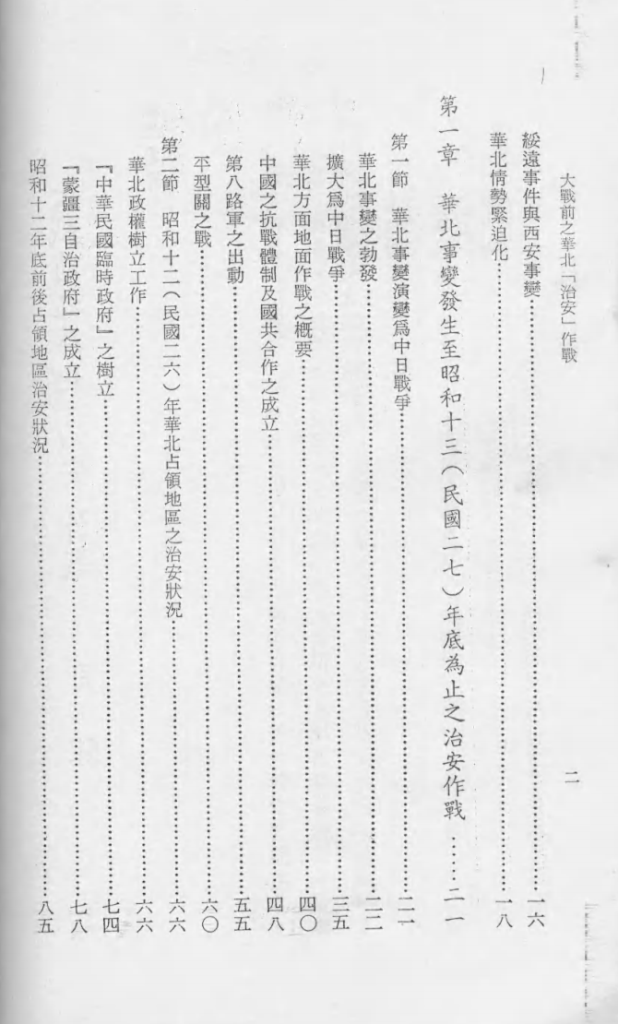 大戰前之華北「治安」作戰
二
綏遠事件與西安事變……一六
華北情勢緊迫化……一八
第一章　華北事變發生至昭和十三（民國二七）年底為止之治安作戰……二一
第一節　華北事變演變爲中日戰爭……二一
華北事變之勃發……二二
擴大爲中日戰爭……三五
華北方面地面作戰之概要……四〇
中國之抗戰體制及國共合作之成立……四八
第八路軍之出動……五五
平型關之戰……六〇
第二節　昭和十二（民國二六）年華北占領地區之治安狀況……六六
華北政權樹立工作……六六
「中華民國臨時政府」之樹立……七四
「蒙疆三自治政府」之成立……七八
昭和十二年底前後占領地區治安狀況……八五